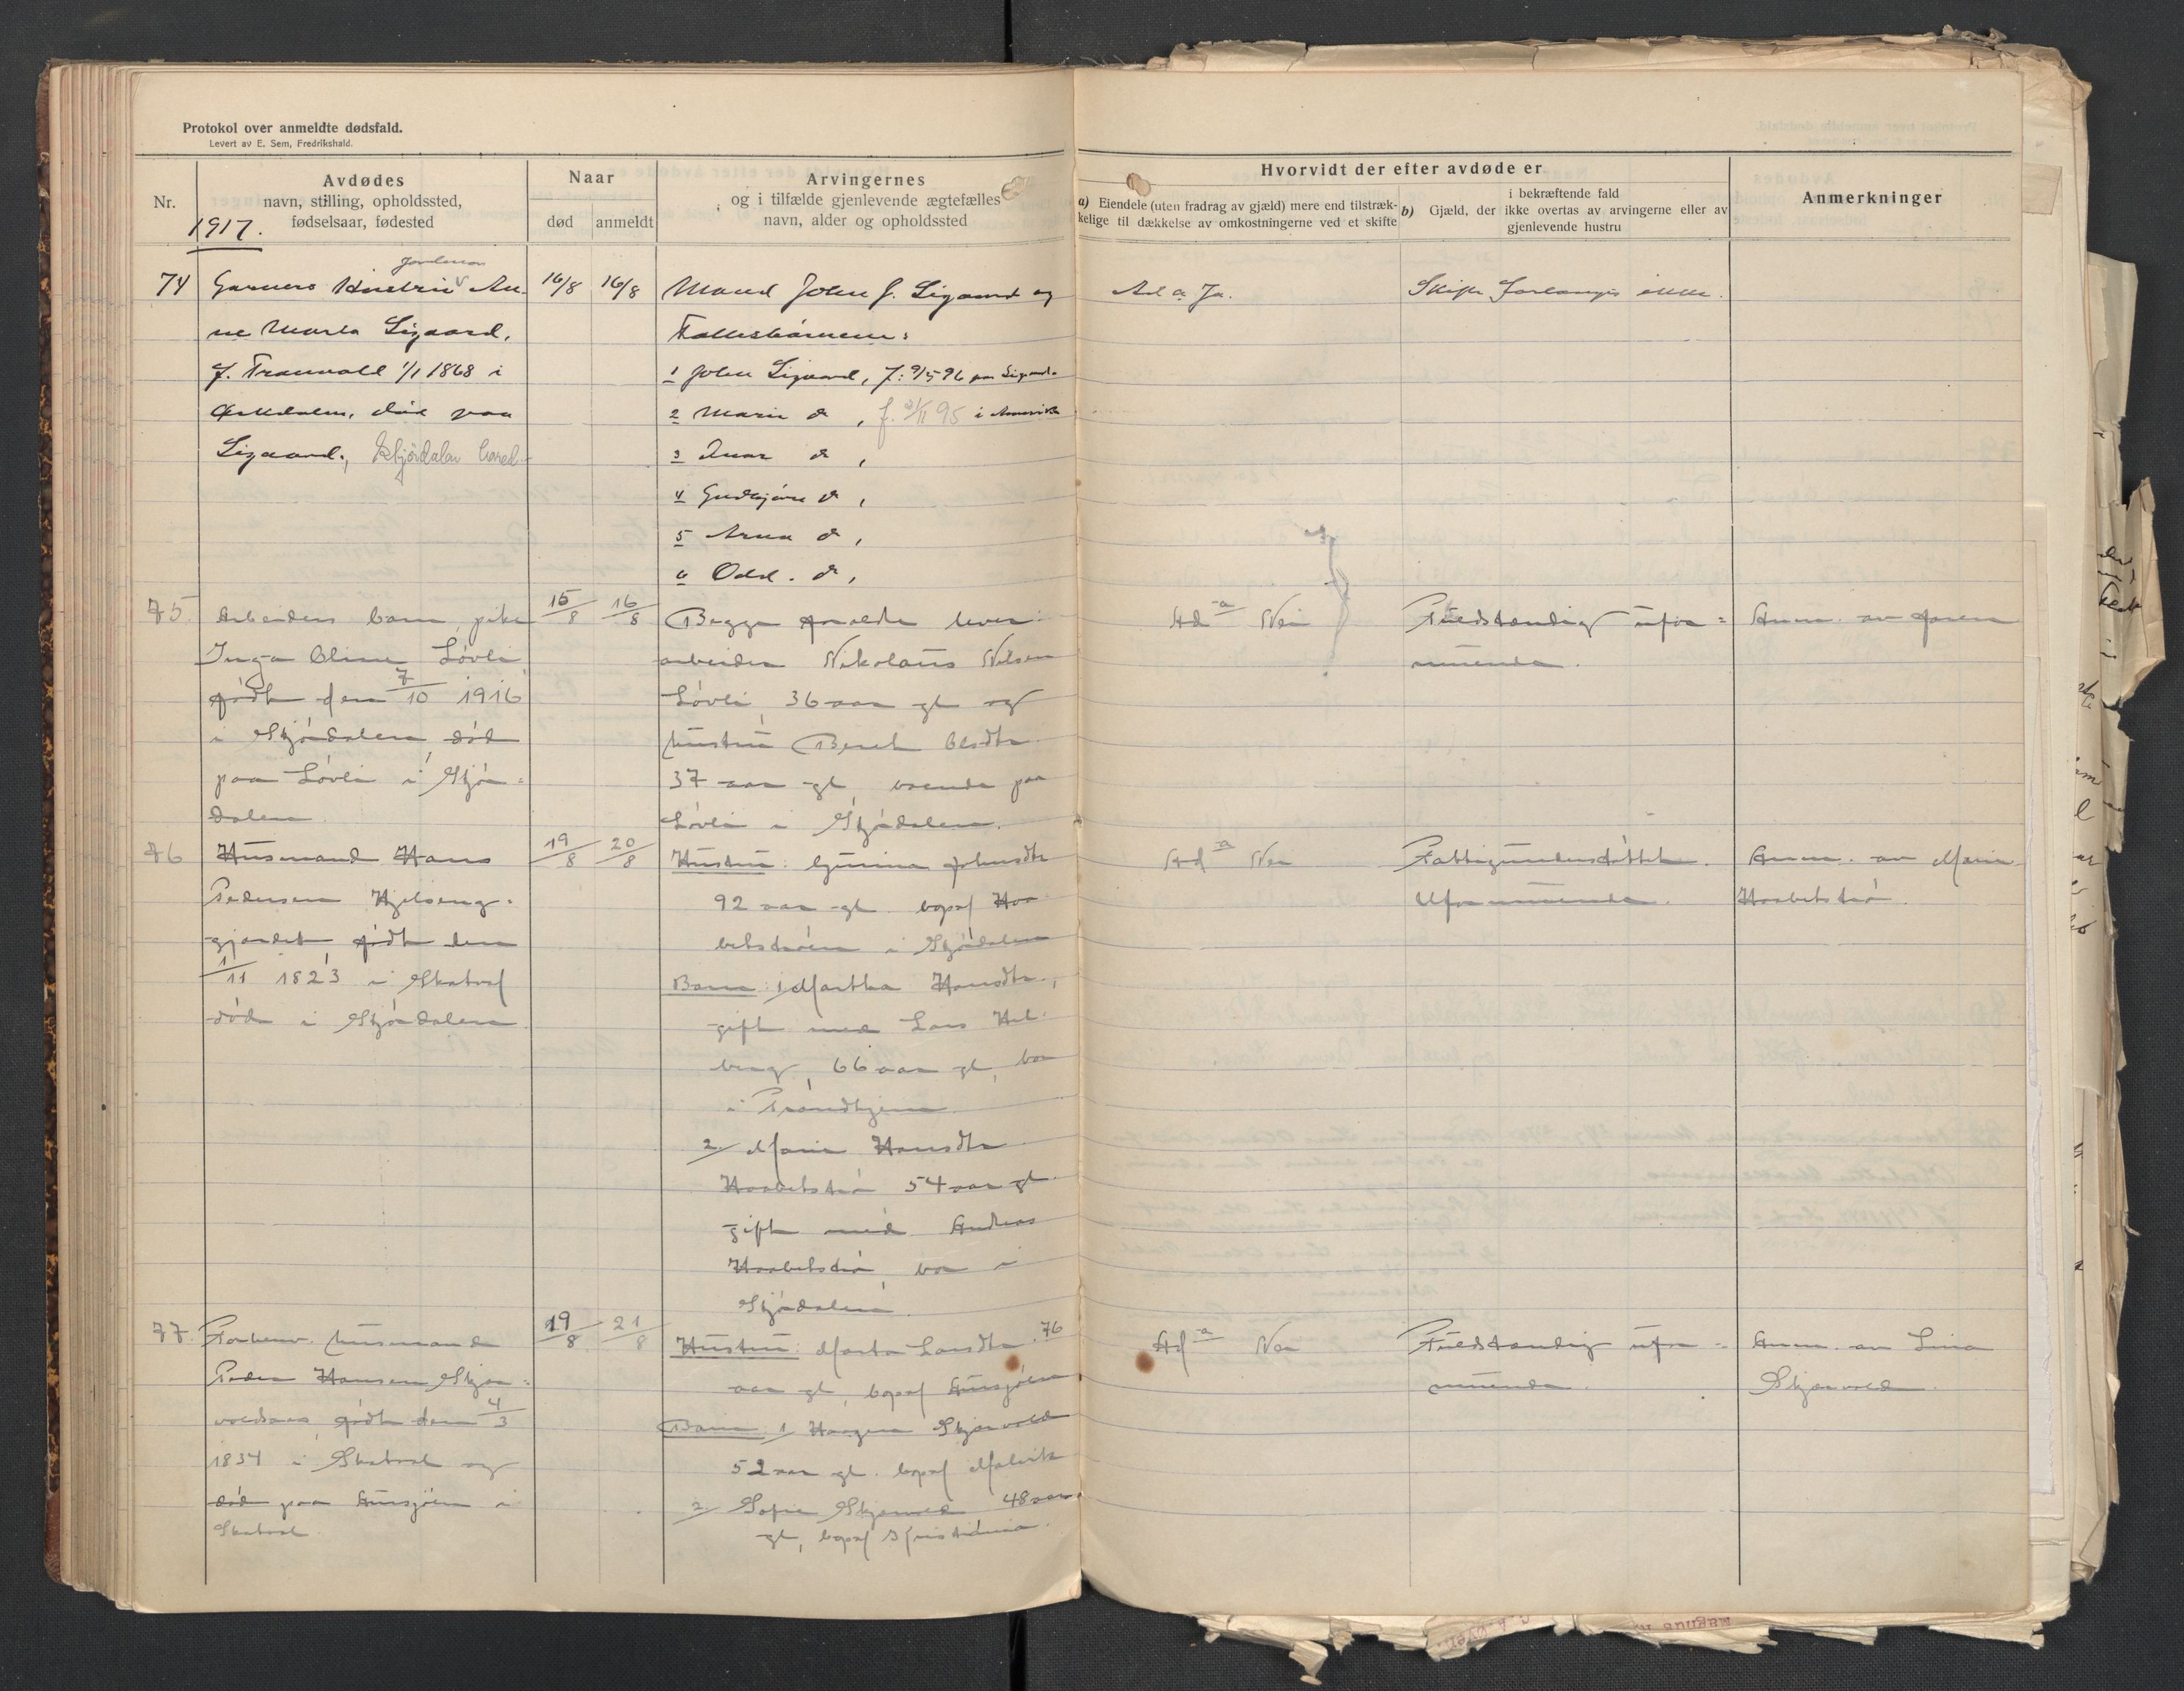 Protokol over anmeldte dødsfald.
Levert av E. Sem, Fredrikshald.
Nr.
Avdødes
navn, stilling, opholdssted,
fødselsaar, fødested
1917.
Naar
død
anmeldt
Arvingernes
og i tilfælde gjenlevende ægtefælles
navn, alder og opholdssted
Hvorvidt der efter avdøde er
a) Eiendele (uten fradrag av gjæld) mere end tilstræk-
kelige til dækkelse av omkostningerne ved et skifte
b) Gjæld, der
i bekræftende fald
ikke overtas av arvingerne eller av
gjenlevende hustru
Anmerkninger
74
Hustru An-
ne Marta Ligaard,
f. Tranvold 1/1 1868 i
død paa
Ligaard,
16/8
16/8
Mand John J. Ligaard og
Fællesbørnene:
1 John Ligaard, f. 9/5 96 paa Ligaard.
2 Marie do, f. 95 i Amerika
3 do,
4 do,
5 Arna do,
6 Odd. do,
Ad a Ja.
Skifte forlanges ikke.
75.
Arbeiders barn, pike
Inga Oline Løvli
født den 7/10 1916
i Skjördalen, död
paa Løvli i Skjör-
dalen.
15/8
16/8
Begge foreldre lever:
arbeider Nikolaus Nilsen
Løvli, 36 aar gl og
hustru Beret Olsdtr
37 aar gl, boende paa
Løvli i Skjördalen.
Ad a Nei
Fuldstændig ufor-
muende.
Anm. av faren
76
Husmand Hans
Pedersen Hjelseng-
gjerdet, født den
1/11 1823 i Skatval
död i Skjördalen
19/8
20/8
Hustru: Gurina Johnsdtr
92 aar gl. bopæl Haa-
betströen i Skjördalen
Barn: 1/ Martha Hansdtr,
gift med Lars Hel-
berg, 66 aar gl, bor
i Trondhjem.
2/ Marie Hansdtr
Haabetströ 54 aar gl
gift med Andreas
Haabetströ, bor i
Skjördalen.
Ad a Nei
Fattigunderstöttet.
Uformuende.
Anm. av Marie
Haabetströ.
77.
Forhenv. husmand
Peder Hansen Skjer-
voldsaas, født den 4/3
1834 i Skatval og
död paa i
Skatval.
19/8
21/8
Hustru: Marta Larsdtr. 76
aar gl, bopæl
Barn: 1/ Haagen Skjervold
52 aar gl. bopæl Malvik
2/ Sofie Skjervold 48 aar
gl, bopæl Kristiania.
Ad a Nei
Fuldstændig ufor-
muende.
Anm. av Lina
Skjervold.